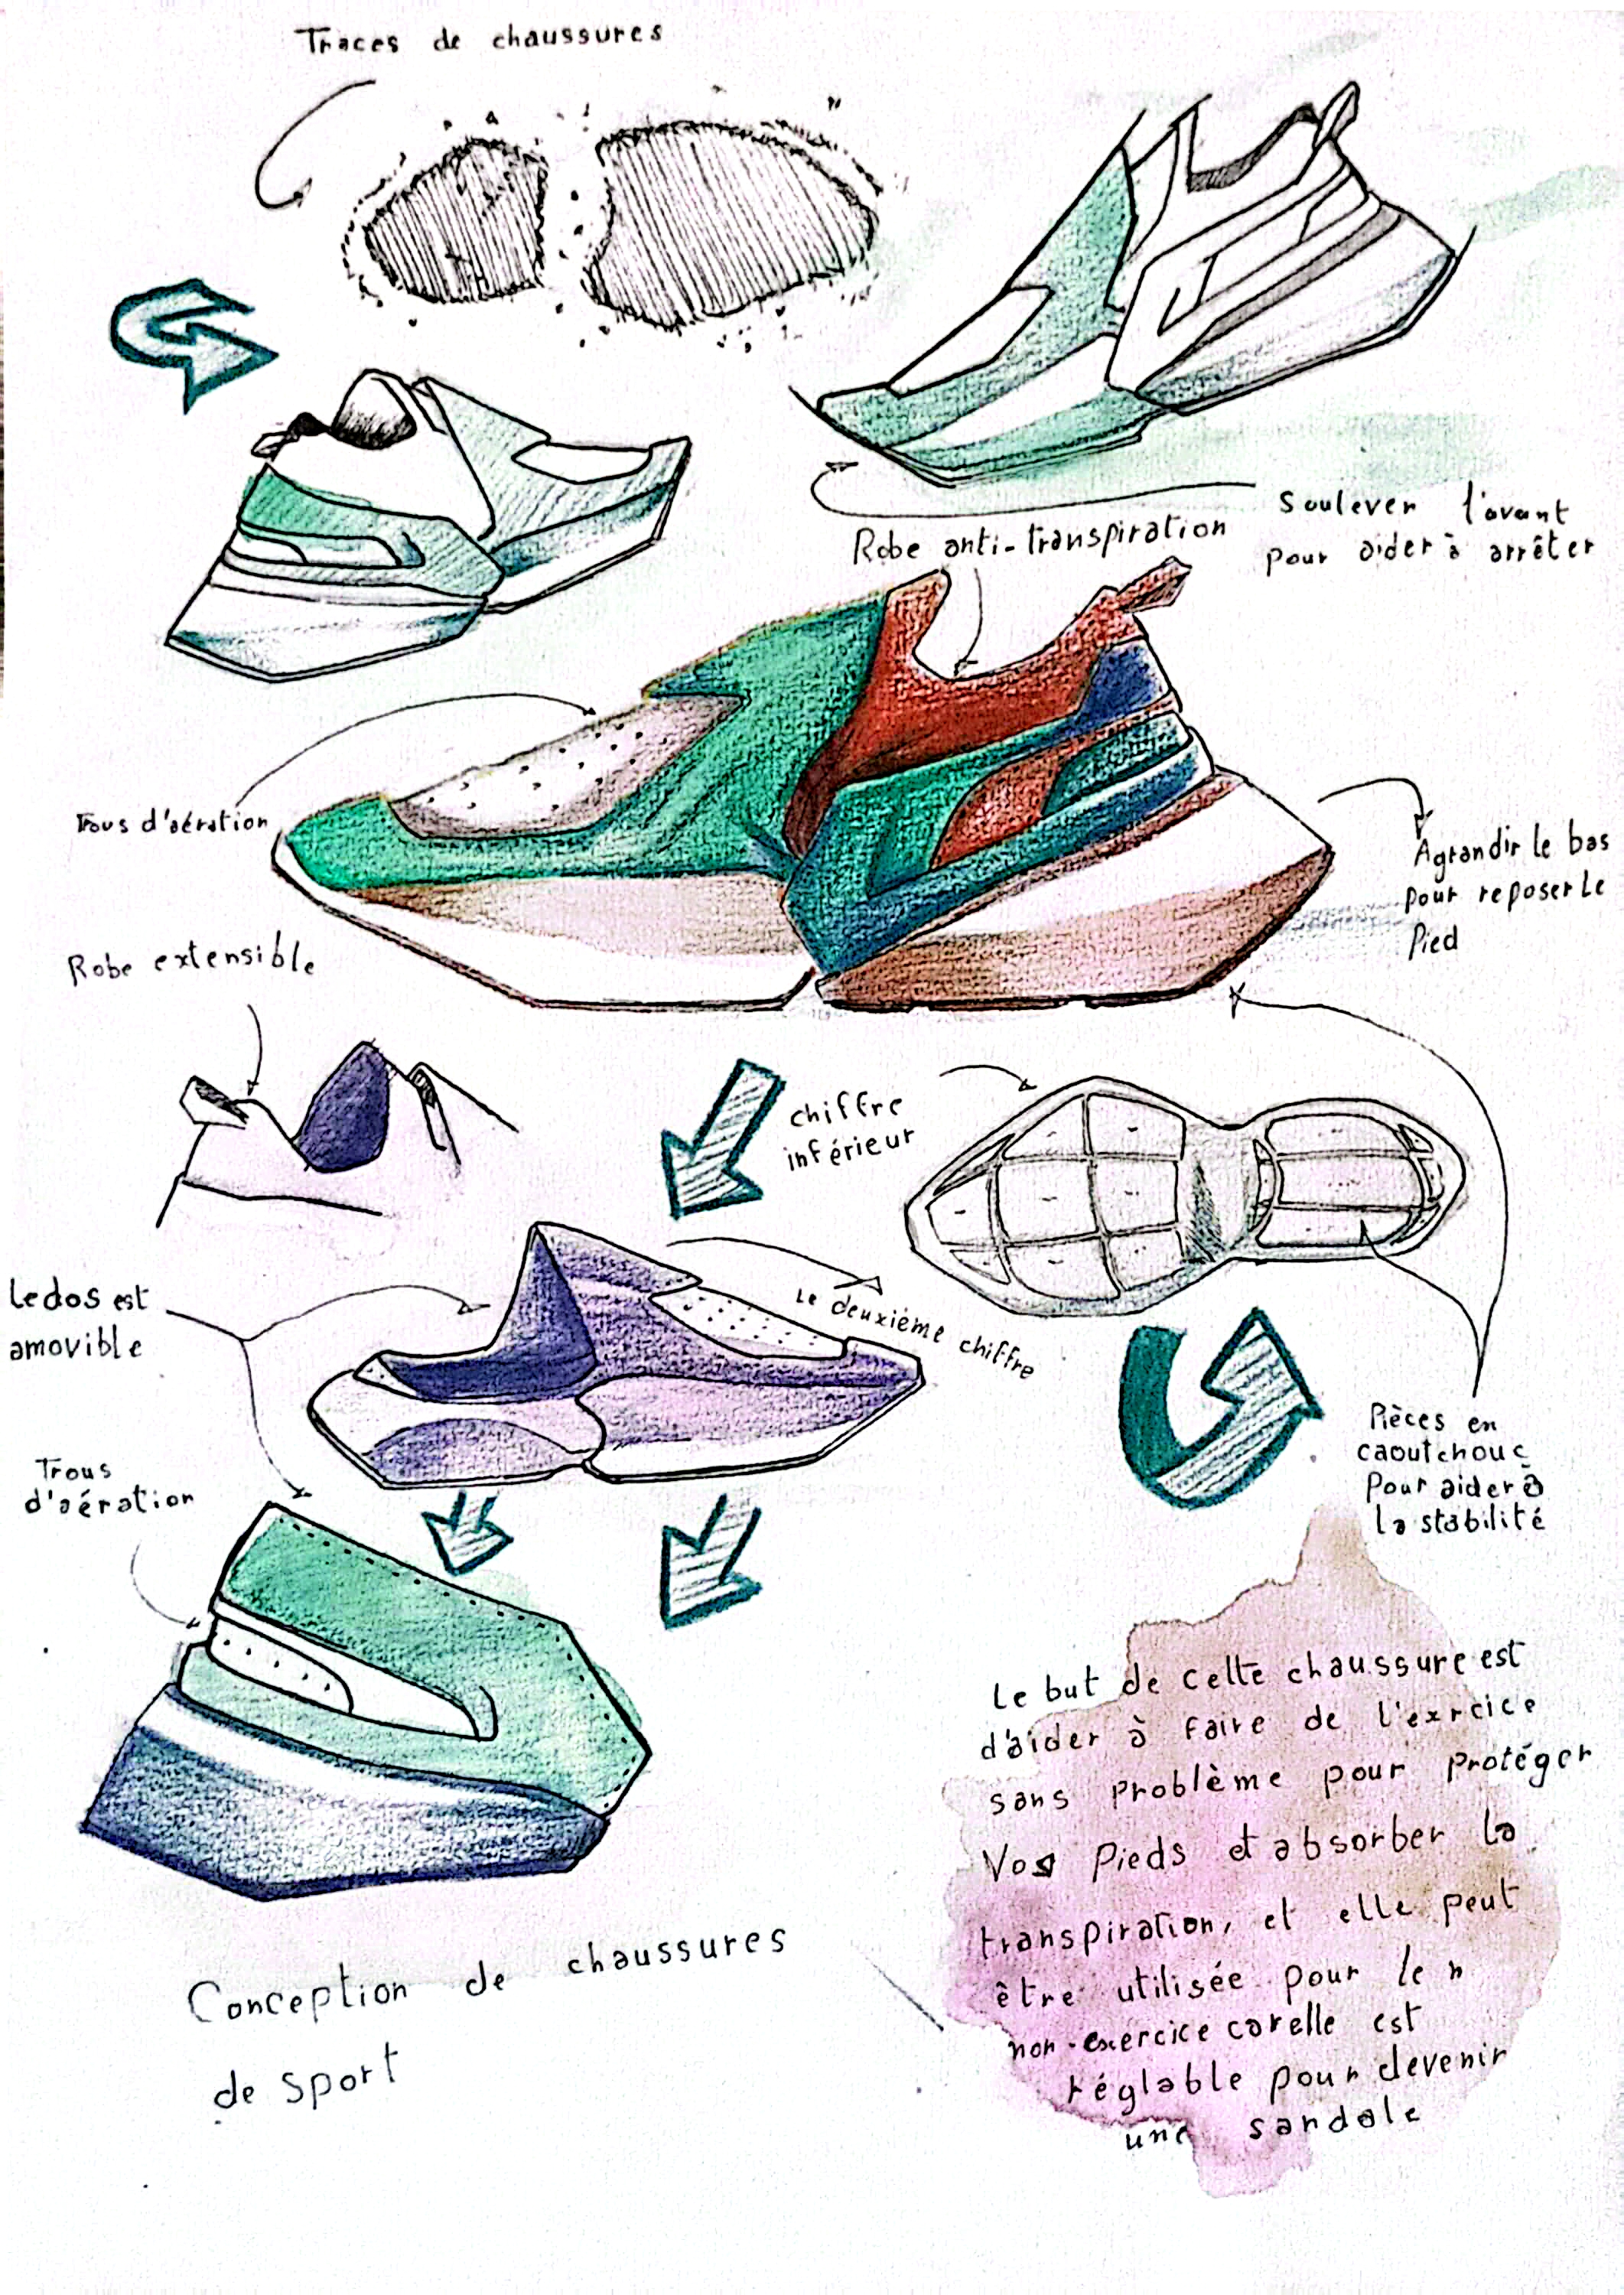 Traces de chaussures
Soulever l'avant
pour aider à arrêter
Robe anti-transpiration
Trous d'aération
Agrandir le bas
pour reposer le
pied
Robe extensible
chiffre
inférieur
Le dos est
amovible
Le deuxième chiffre
Pièces en
caoutchouc
Pour aider à
la stabilité
Trous
d'aération
Le but de cette chaussure est
d'aider à faire de l'exrcice
sans problème pour protéger
Vos pieds et absorber la
transpiration, et elle peut
être utilisée pour le n
non-exercice carelle est
réglable pour devenir
une sandale
Conception de chaussures
de sport